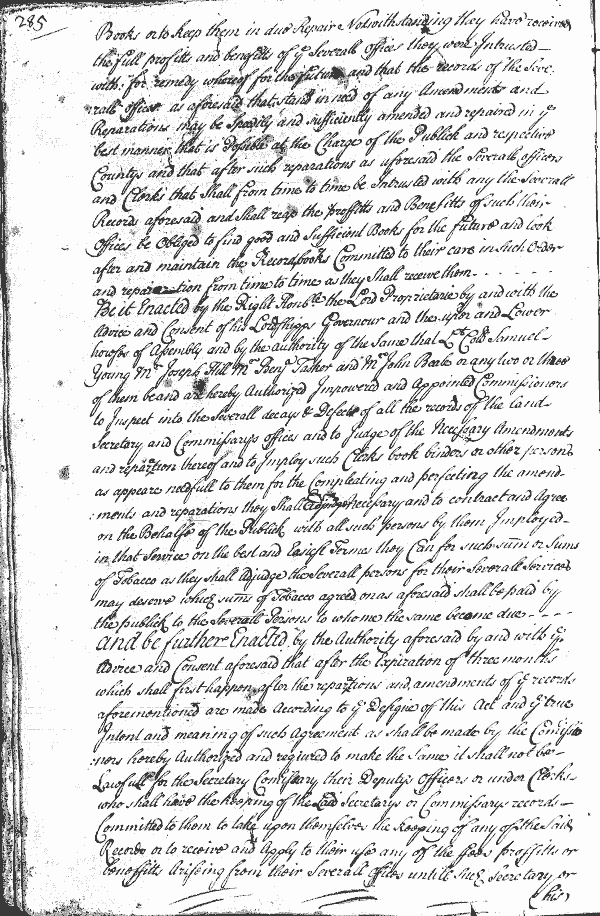 285
Books or to keep them in due Repair Notwithstanding they have received
the full profitts and benefitts of ye Severall Offices they were Intrusted
with: for remedy whereof for the future and that the records of the Seve
rall offices as aforesaid that stand in need of any Amendments and
Reparations may be Speedily and sufficiently amended and repaired in ye
best manner that is Possible at the Charge of the Publick and respective
Countys and that after such reparations as aforesaid the Severall officers
and Clerks that Shall from time to time be Intrusted with any the Severall
Record aforesaid and Shall reap the proffitts and Benefitts of such their
Offices be Obliged to find good and Sufficient Books for the future and look
after and maintain the Recordbooks Committed to their care in such Order
and reparation from time to time as they Shall receive them
Be it Enacted by the Right Honble the Lord Proprietarie by and with the
Advice and Consent of his Lordshipps Governour and the upper and Lower
houses of Assembly and by the Authority of the Same that Lt Coll Samuel
Young Mr Joseph Hill Mr Benj Tasker and Mr John Beale or any two or three
of them be and are hereby Authorized Impowered and Appointed Commissioners
to Inspect into the Severall decays & Defects of all the records of the Land
Secretary and Commissarys offices and to Judge of the Necessary Amendments
and reparation thereof and to Imploy such Clerks book binders or other persons
as appeare needfull to them for the Compleating and perfecting the amend
:ments and reparations they Shall adjudge Necessary and to contract and Agree
on the Behalfe of the Publick with all such persons by them Imployed
in that Service on the best and Easiest Termes they Can for such sum or Sums
of Tobacco as they Shall Adjudge the Severall persons for their Severall Services
may deserve which sums of Tobacco agreed on as aforesaid shall be paid by
the publick to the Severall Persons to whome the same become due
And be further Enacted by the Authority aforesaid by and with ye
Advice and Consent aforesaid that after the Expiration of three months
which shall first happen after the reparations and amendments of ye records
aforementioned are made According to ye Designe of this Act and ye true
Intent and meaning of such Agreement as shall be made by the Comissio
:ners hereby Authorized and required to make the Same it shall not be
Lawfull for the Secretary Comissary their Deputys Officers or under Clerks
who shall have the keeping of the Said Secretarys or Commissarys records
Committed to them to take upon themselves the keeping of any of the Said
Records or to receive and Apply to their use any of the fees proffitts or
benefitts Arising from their Severall Offices untill such Secretary or
his